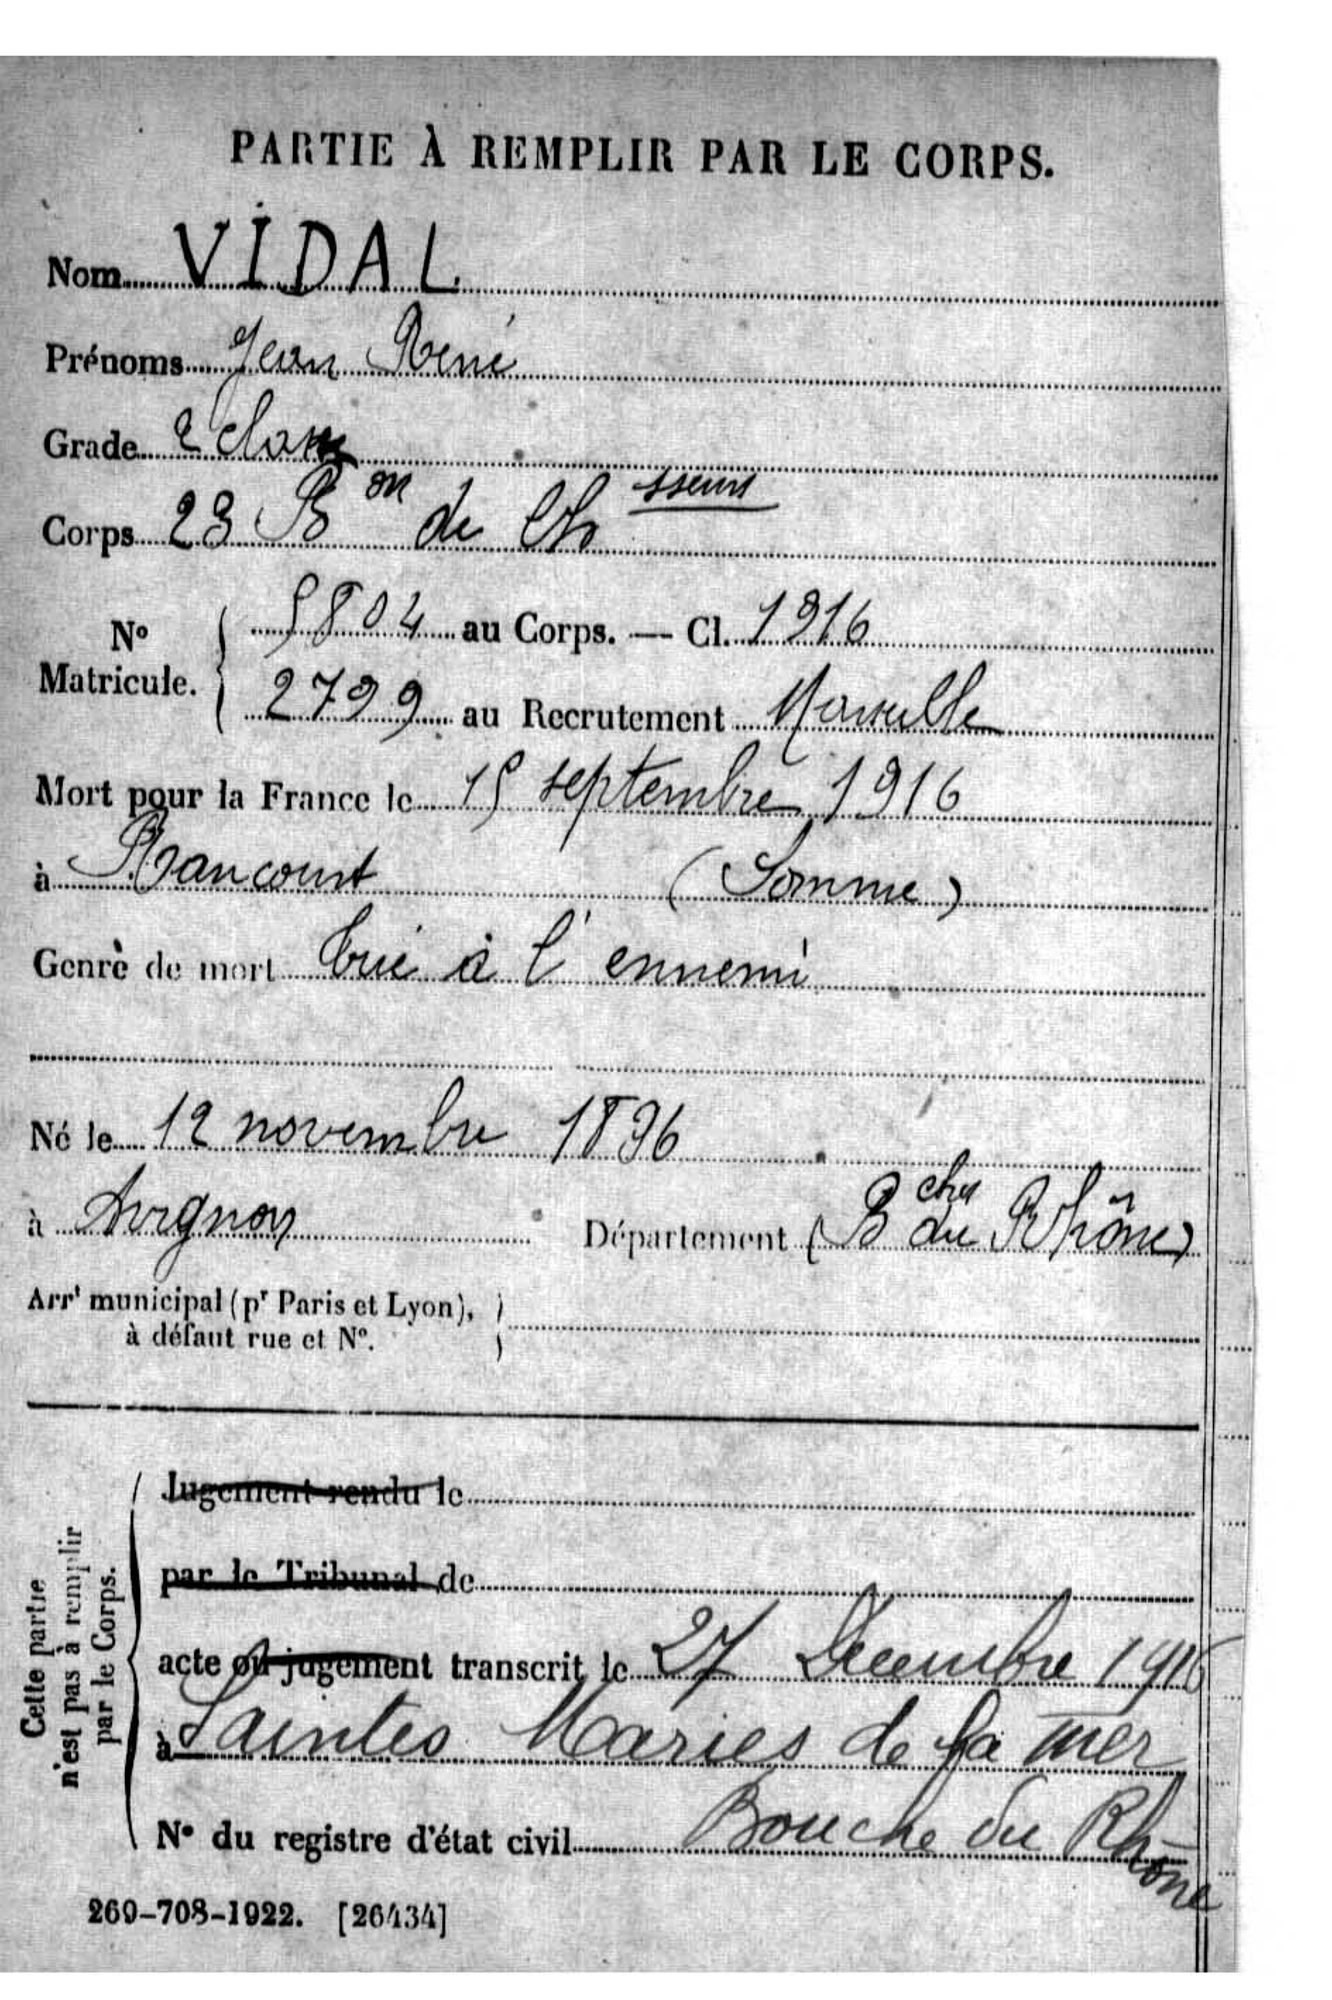 PARTIE À REMPLIR PAR LE CORPS.
Nom VIDAL
Prénoms Jean René
Grade 2 clas
Corps 23 Bon de Ch sseurs
No Matricule. 5804 au Corps. — Cl. 1916
2799 au Recrutement Marseille
Mort pour la France le 15 septembre 1916
à Rancourt (Somme)
Genre de mort tué à l'ennemi
Né le 12 novembre 1896
à Avignon Département (Bches du Rhône)
Arrt municipal (pr Paris et Lyon),
à défaut rue et No.
Jugement rendu le
par le Tribunal de
acte ou jugement transcrit le 27 Decembre 1916
à Saintes Maries de la mer
No du registre d'état civil Bouche du Rhône
Cette partie
n'est pas à remplir
par le Corps.
269-708-1922. [26434]